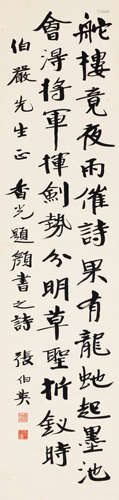 舵樓竟夜雨催詩果有龍虵起墨池
會得將軍揮劍勢分明草聖折釵時
伯嚴先生正 香光題顏書之詩 張伯英